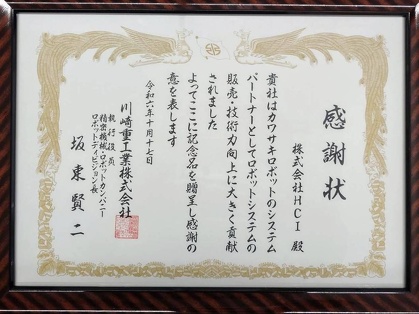 感謝状
株式会社HCI 殿
貴社はカワサキロボットのシステム
パートナーとしてロボットシステムの
販売・技術力向上に大きく貢献
されました
よってここに記念品を贈呈し感謝の
意を表します
令和六年十月十七日
川崎重工業株式会社
執行役員
精密機械・ロボットカンパニー
ロボットディビジョン長
坂東賢二